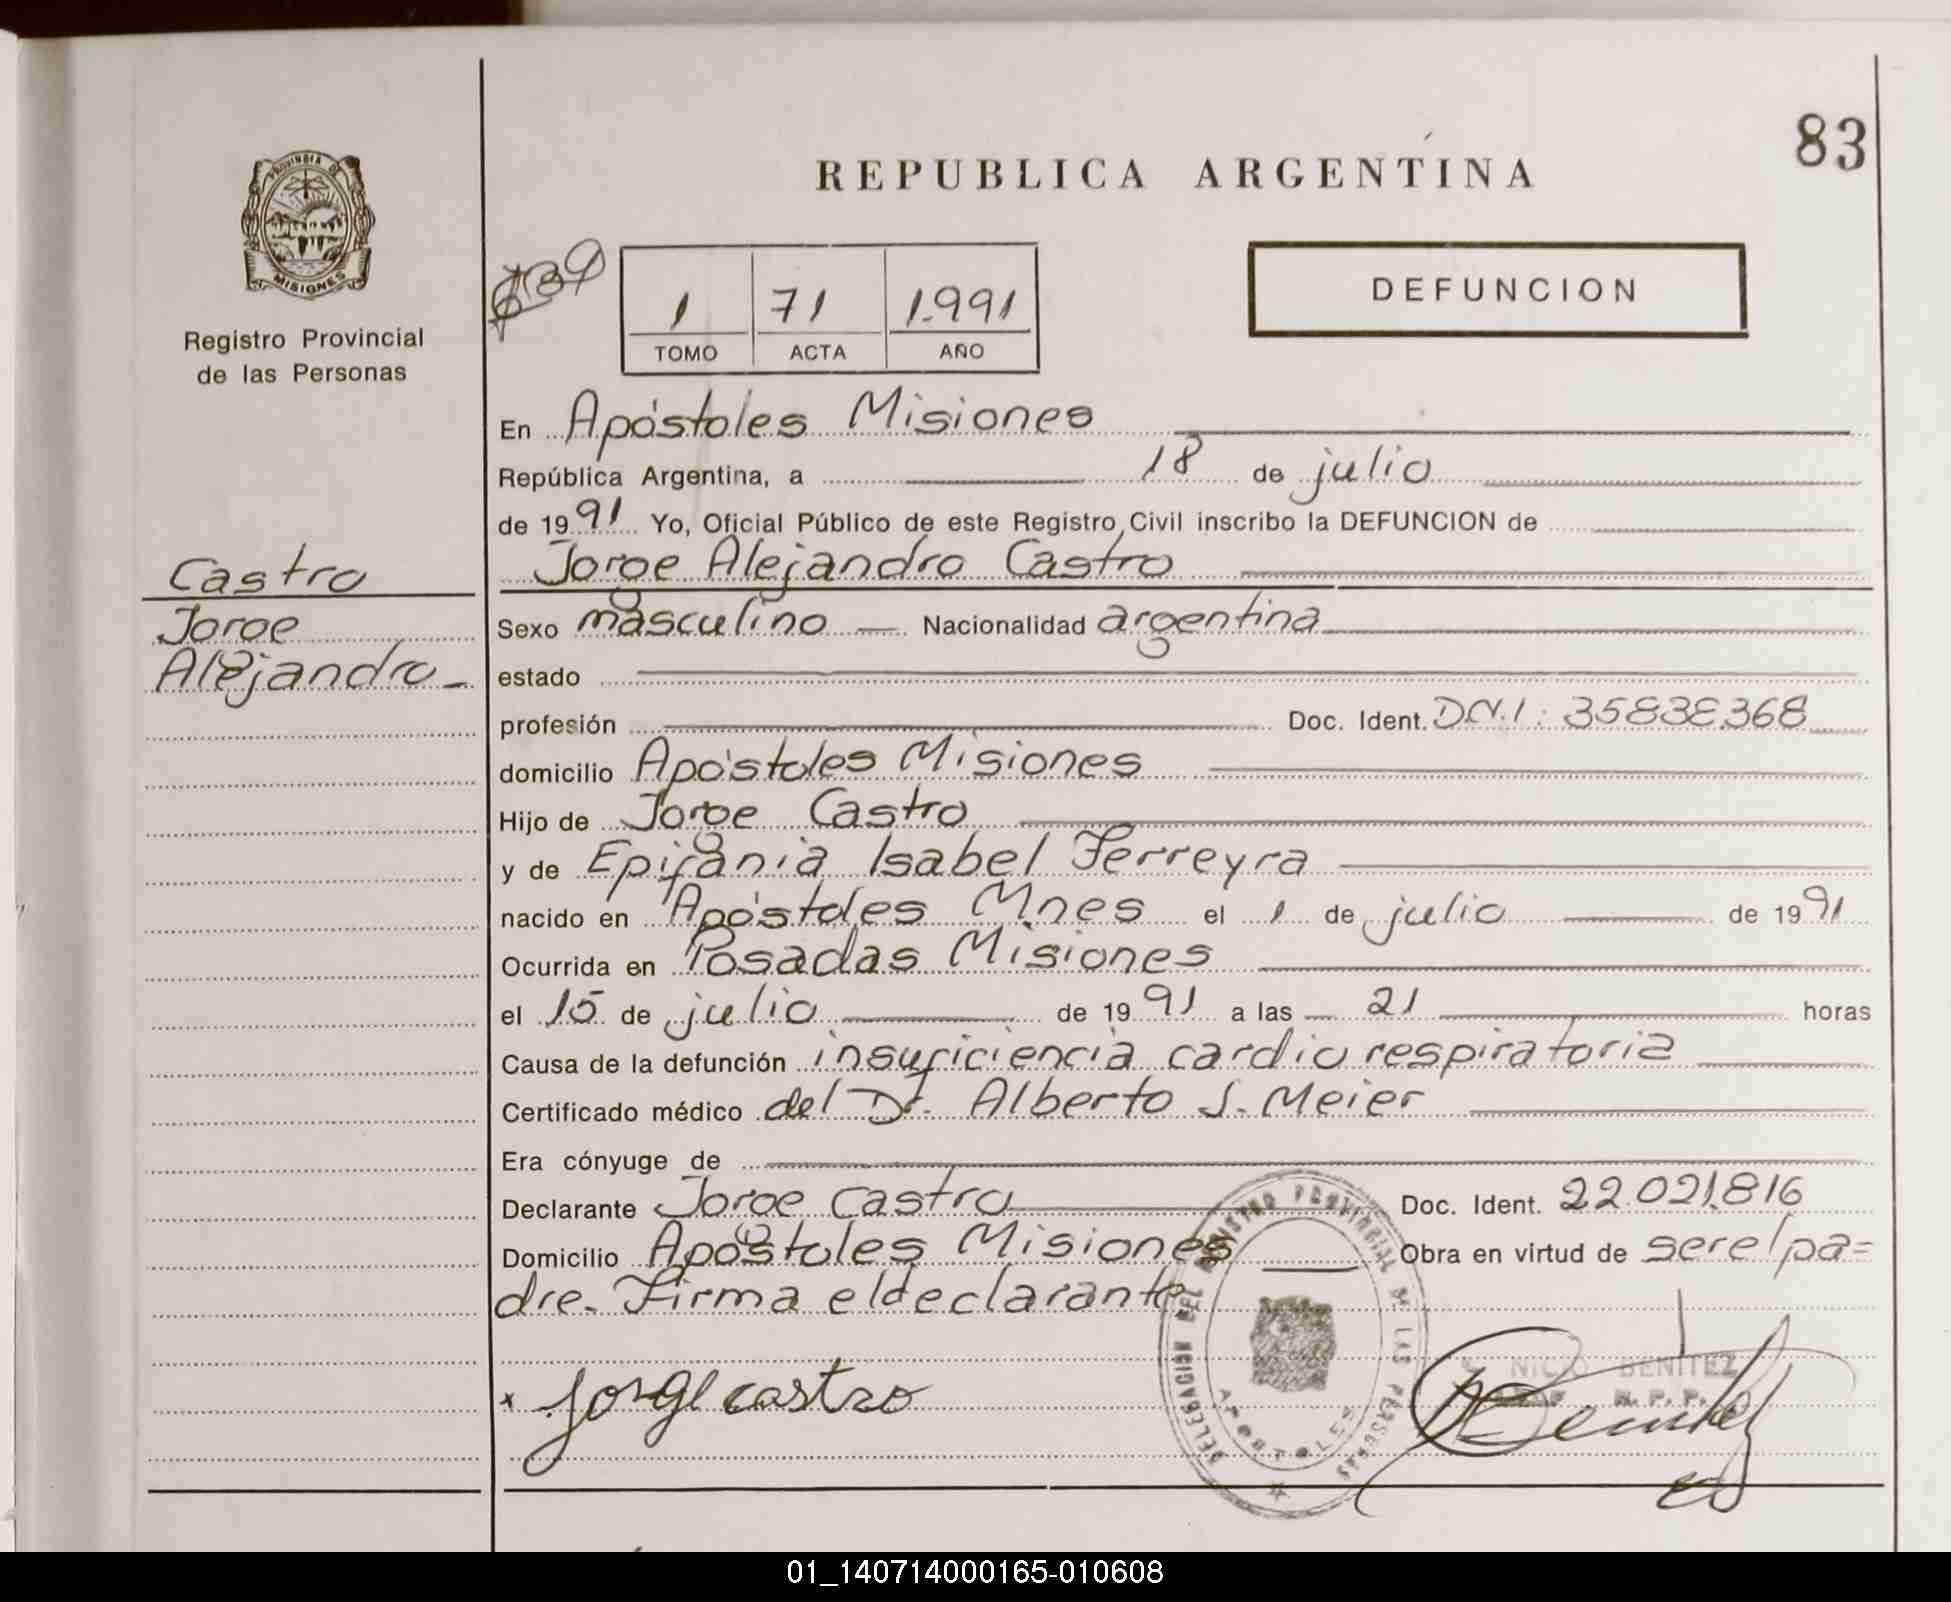 83
REPUBLICA ARGENTINA
PROVINCIA DE
MISIONES
Registro Provincial
de las Personas
1 71 1.991
TOMO ACTA AÑO
DEFUNCION
En Apóstoles Misiones
República Argentina, a 18 de julio
de 1991 Yo, Oficial Público de este Registro Civil inscribo la DEFUNCION de
Jorge Alejandro Castro
Castro
Jorge
Alejandro
Sexo masculino Nacionalidad argentina
estado
profesión Doc. Ident. D.N.I: 35838368
domicilio Apóstoles Misiones
Hijo de Jorge Castro
y de Epifania Isabel Ferreyra
nacido en Apóstoles Mnes el 1 de julio de 1991
Ocurrida en Posadas Misiones
el 15 de julio de 1991 a las 21 horas
Causa de la defunción insuficiencia cardio respiratoria
Certificado médico del Dr. Alberto J. Meier
Era cónyuge de
Declarante Jorge Castro Doc. Ident. 22.021.816
Domicilio Apóstoles Misiones Obra en virtud de ser el pa=
dre. Firma el declarante
DELEGACION DEL REGISTRO PROVINCIAL DE LAS PERSONAS
APOSTOLES
x Jorge castro
BENITEZ
R.P.P.
01_140714000165-010608